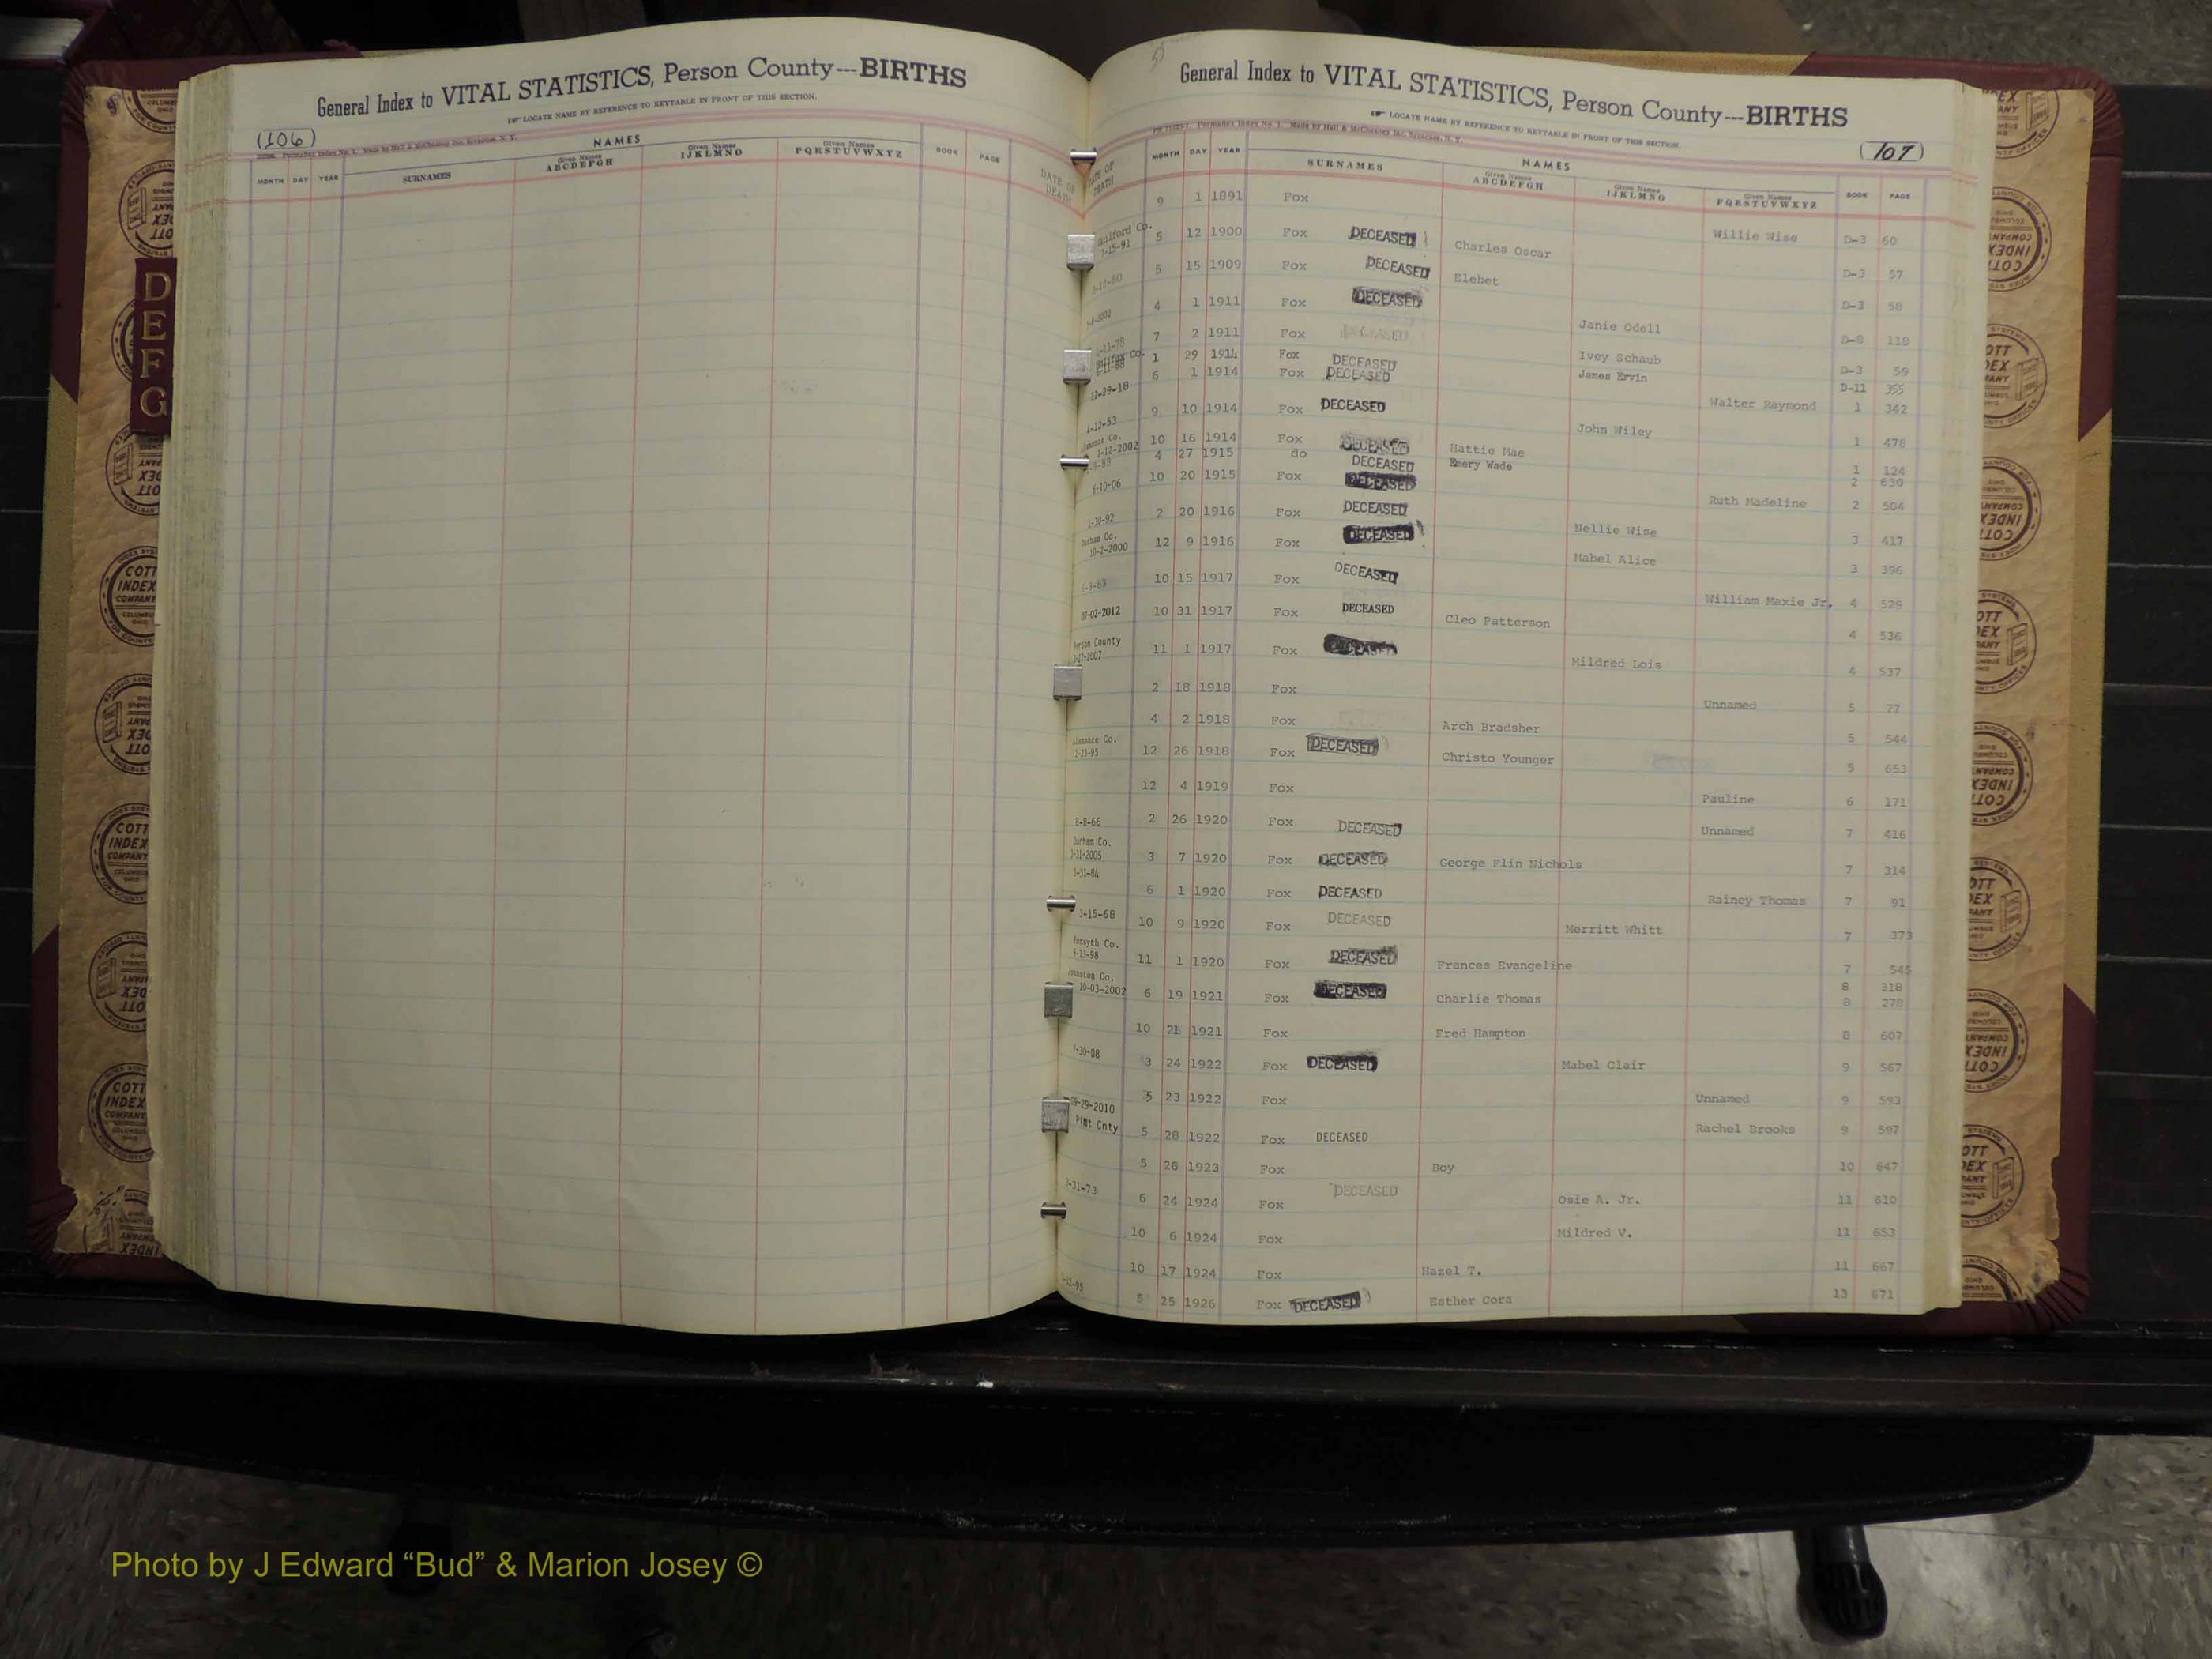 General Index to VITAL STATISTICS, Person County---BIRTHS
LOCATE NAME BY REFERENCE TO KEYTABLE IN FRONT OF THIS SECTION.
(106)
NAMES
MONTH DAY YEAR SURNAMES Given Names ABCDEFGH Given Names IJKLMNO Given Names PQRSTUVWXYZ BOOK PAGE
DATE OF DEATH
D
E
F
G
General Index to VITAL STATISTICS, Person County---BIRTHS
LOCATE NAME BY REFERENCE TO KEYTABLE IN FRONT OF THIS SECTION.
(107)
NAMES
DATE OF DEATH MONTH DAY YEAR SURNAMES Given Names ABCDEFGH Given Names IJKLMNO Given Names PQRSTUVWXYZ BOOK PAGE
9 1 1891 Fox Willie Wise D-3 60
Guilford Co. 7-15-91 5 12 1900 Fox DECEASED Charles Oscar D-3 57
5 15 1909 Fox DECEASED Elebet D-3 58
4 1 1911 Fox DECEASED Janie Odell D-8 118
7 2 1911 Fox DECEASED Ivey Schaub D-3 59
1 29 1914 Fox DECEASED James Ervin D-11 355
12-29-18 6 1 1914 Fox DECEASED Walter Raymond 1 342
4-12-53 9 10 1914 Fox DECEASED John Wiley 1 478
Alamance Co. 3-12-2002 10 16 1914 Fox DECEASED Hattie Mae 1 124
4 27 1915 do DECEASED Emery Wade 2 630
6-10-06 10 20 1915 Fox DECEASED Ruth Madeline 2 504
1-30-92 2 20 1916 Fox DECEASED Nellie Wise 3 417
Durham Co. 10-2-2000 12 9 1916 Fox DECEASED Mabel Alice 3 396
6-9-83 10 15 1917 Fox DECEASED William Maxie Jr. 4 529
07-02-2012 10 31 1917 Fox DECEASED Cleo Patterson 4 536
Person County 11 1 1917 Fox DECEASED Mildred Lois 4 537
2 18 1918 Fox Unnamed 5 77
4 2 1918 Fox Arch Bradsher 5 544
Alamance Co. 12-23-95 12 26 1918 Fox DECEASED Christo Younger 5 653
12 4 1919 Fox Pauline 6 171
8-8-66 2 26 1920 Fox DECEASED Unnamed 7 416
Durham Co. 3-31-2005 3 7 1920 Fox DECEASED George Flin Nichols 7 314
6 1 1920 Fox DECEASED Rainey Thomas 7 91
3-15-68 10 9 1920 Fox DECEASED Merritt Whitt 7 373
Forsyth Co. 9-13-98 11 1 1920 Fox DECEASED Frances Evangeline 7 545
8 318
Johnston Co. 10-03-2002 6 19 1921 Fox DECEASED Charlie Thomas 8 278
10 1921 Fox Fred Hampton 8 607
3 24 1922 Fox DECEASED Mabel Clair 9 567
5 23 1922 Fox Unnamed 9 593
09-29-2010 Plmt Cnty 5 28 1922 Fox DECEASED Rachel Brooks 9 597
5 26 1923 Fox Boy 10 647
3-31-73 6 24 1924 Fox DECEASED Osie A. Jr. 11 610
10 6 1924 Fox Mildred V. 11 653
10 17 1924 Fox Hazel T. 11 667
5 25 1926 Fox DECEASED Esther Cora 13 671
COTT INDEX COMPANY COLUMBUS OHIO
Photo by J Edward “Bud” & Marion Josey ©